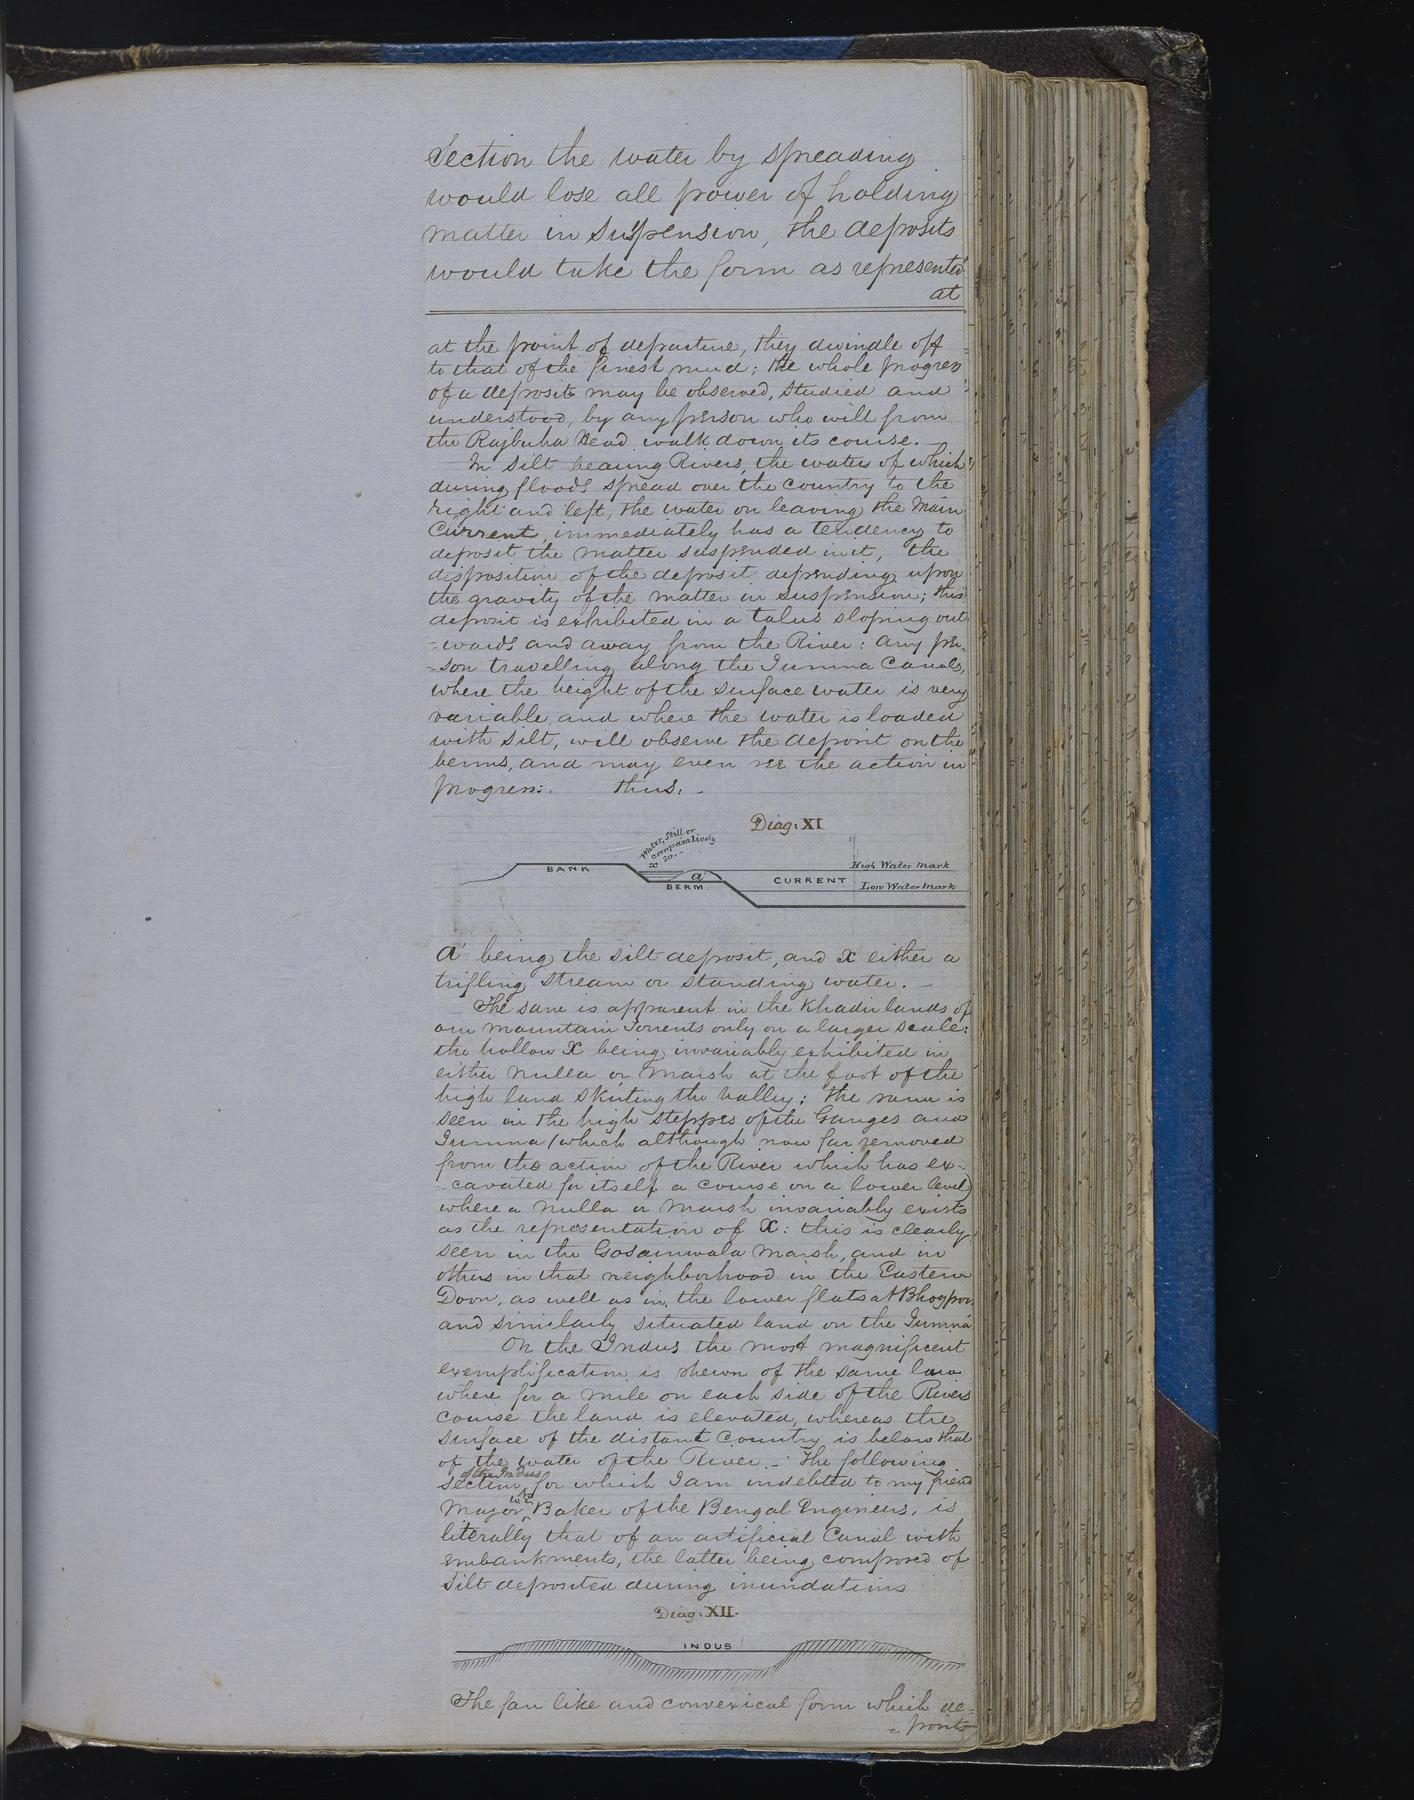 Section the water by spreading
would lose all power of holding
matter in suspension, the deposits
would take the form as represented
at
at the point of departure, they dwindle off
to that of the finest mud; the whole progress
of a deposit may be observed, studied and
understood, by any person who will from
the Rajbuha Head walk down its course. —
In silt bearing Rivers, the waters of which
during floods spread over the country to the
right and left, the water on leaving the Main
Current, immediately has a tendency to
deposit the matter suspended in it, the
disposition of the deposit depending upon
the gravity of the matter in suspension; this
deposit is exhibited in a talus sloping out
-wards and away from the River: any per-
-son travelling along the Jumna Canals,
where the height of the surface water is very
variable, and where the water is loaded
with silt, will observe the deposit on the
berms, and may even see the action in
progress:. thus: -
Diag: XI
Water, still or
comparatively
so. -
x
BANK
a
BERM
CURRENT
High Water Mark
Low Water Mark
a being the silt deposit, and x either a
trifling stream or standing water. —
The same is apparent in the Khadir lands of
our mountain Torrents only on a larger scale:
the hollow X being invariably exhibited in
either nulla or marsh at the foot of the
high land skirting the valley; the same is
seen in the high steppes of the Ganges and
Jumna (which although now far removed
from the action of the River which has ex-
-cavated for itself a course on a lower level)
where a nulla or marsh invariably exists
as the representation of X: this is clearly
seen in the Gosainwala marsh, and in
others in that neighborhood in the Eastern
Doon, as well as in the lower flats at Bhogpoor
and similarly situated land on the Jumna
On the Indus the most magnificent
exemplification is shewn of the same law
where for a mile on each side of the Rivers
course the land is elevated, whereas the
surface of the distant Country is below that
of the water of the River. - The following
of the Indus
section, for which I am indebted to my friend
Major Baker of the Bengal Engineers, is
literally that of an artificial Canal with
embankments, the latter being composed of
silt deposited during inundations
Diag: XII.
INDUS
The fan like and convexical form which de-
-posits